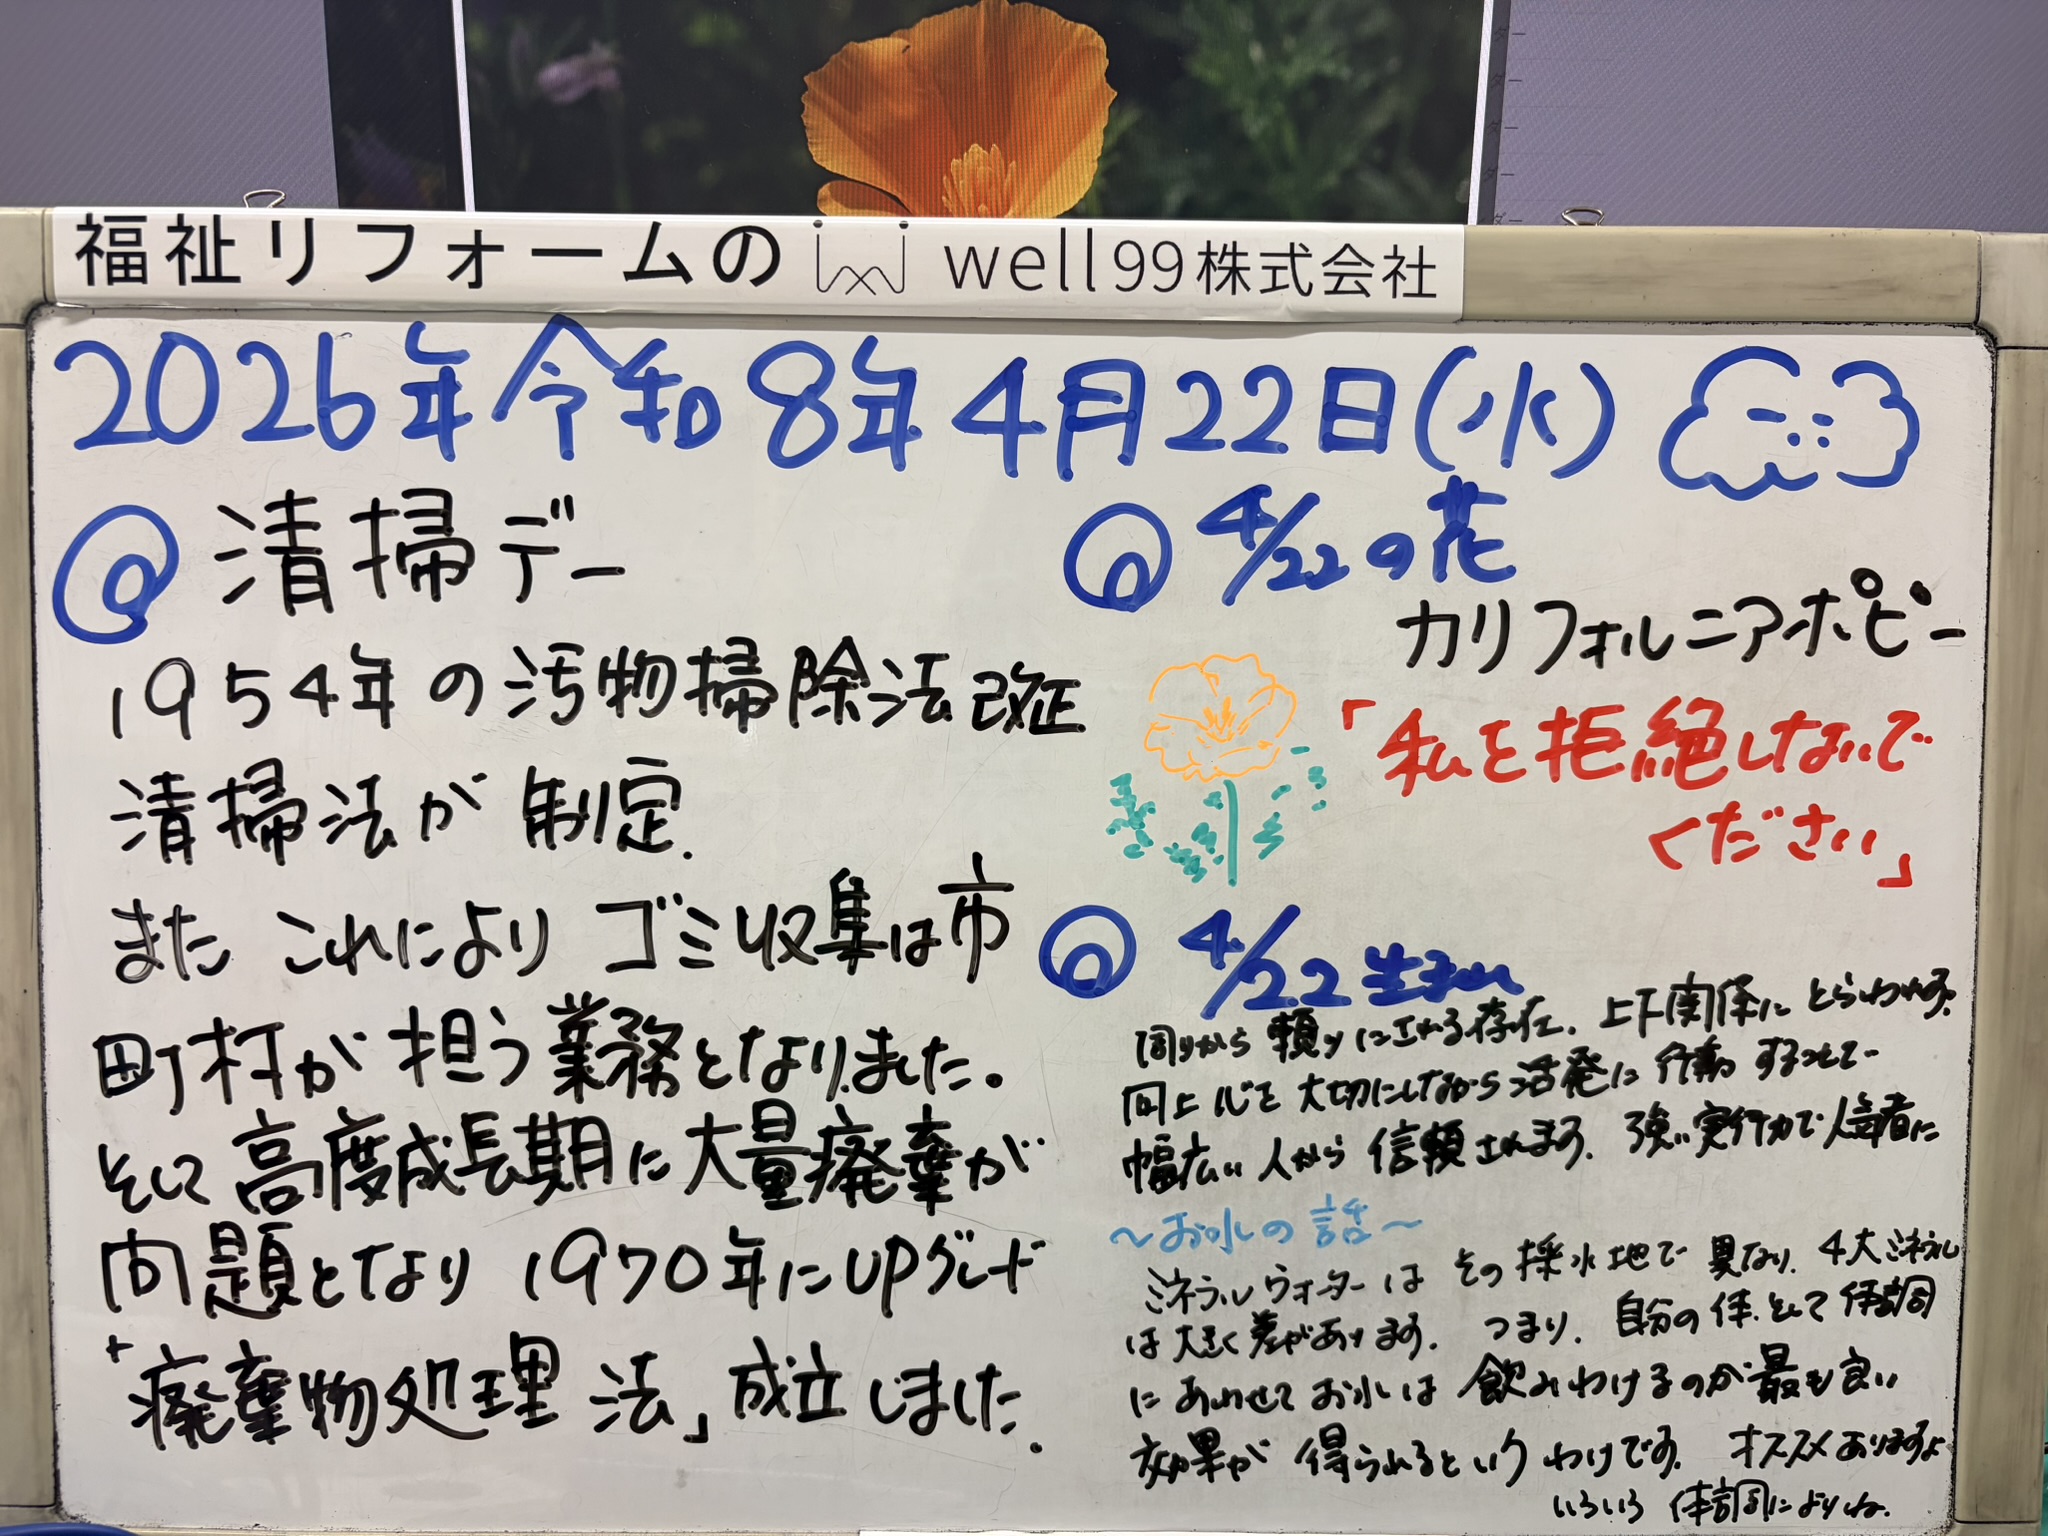 福祉リフォームの well99株式会社
2026年令和8年4月22日(水)
清掃デー
1954年の汚物掃除法改正
清掃法が制定.
また これにより ゴミ収集は市
町村が担う業務となりました。
そして高度成長期に大量廃棄が
問題となり 1970年にUPグレード
「廃棄物処理法」成立しました.
4/22の花
カリフォルニアポピー
「私を拒絶しないで
ください」
4/22生まれ
周りから頼りにされる存在. 上下関係にとらわれず.
向上心を大切にしながら活発に行動するとして
幅広い人から信頼されます. 強い実行力で人気者に
～お水の話～
ミネラルウォーターはその採水地で異なり. 4大ミネラル
は大きく差があります. つまり. 自分の体.そして体調
にあわせてお水は飲みわけるのが最も良い
効果が得られるというわけです. オススメありますよ
いろいろ体調によりね.